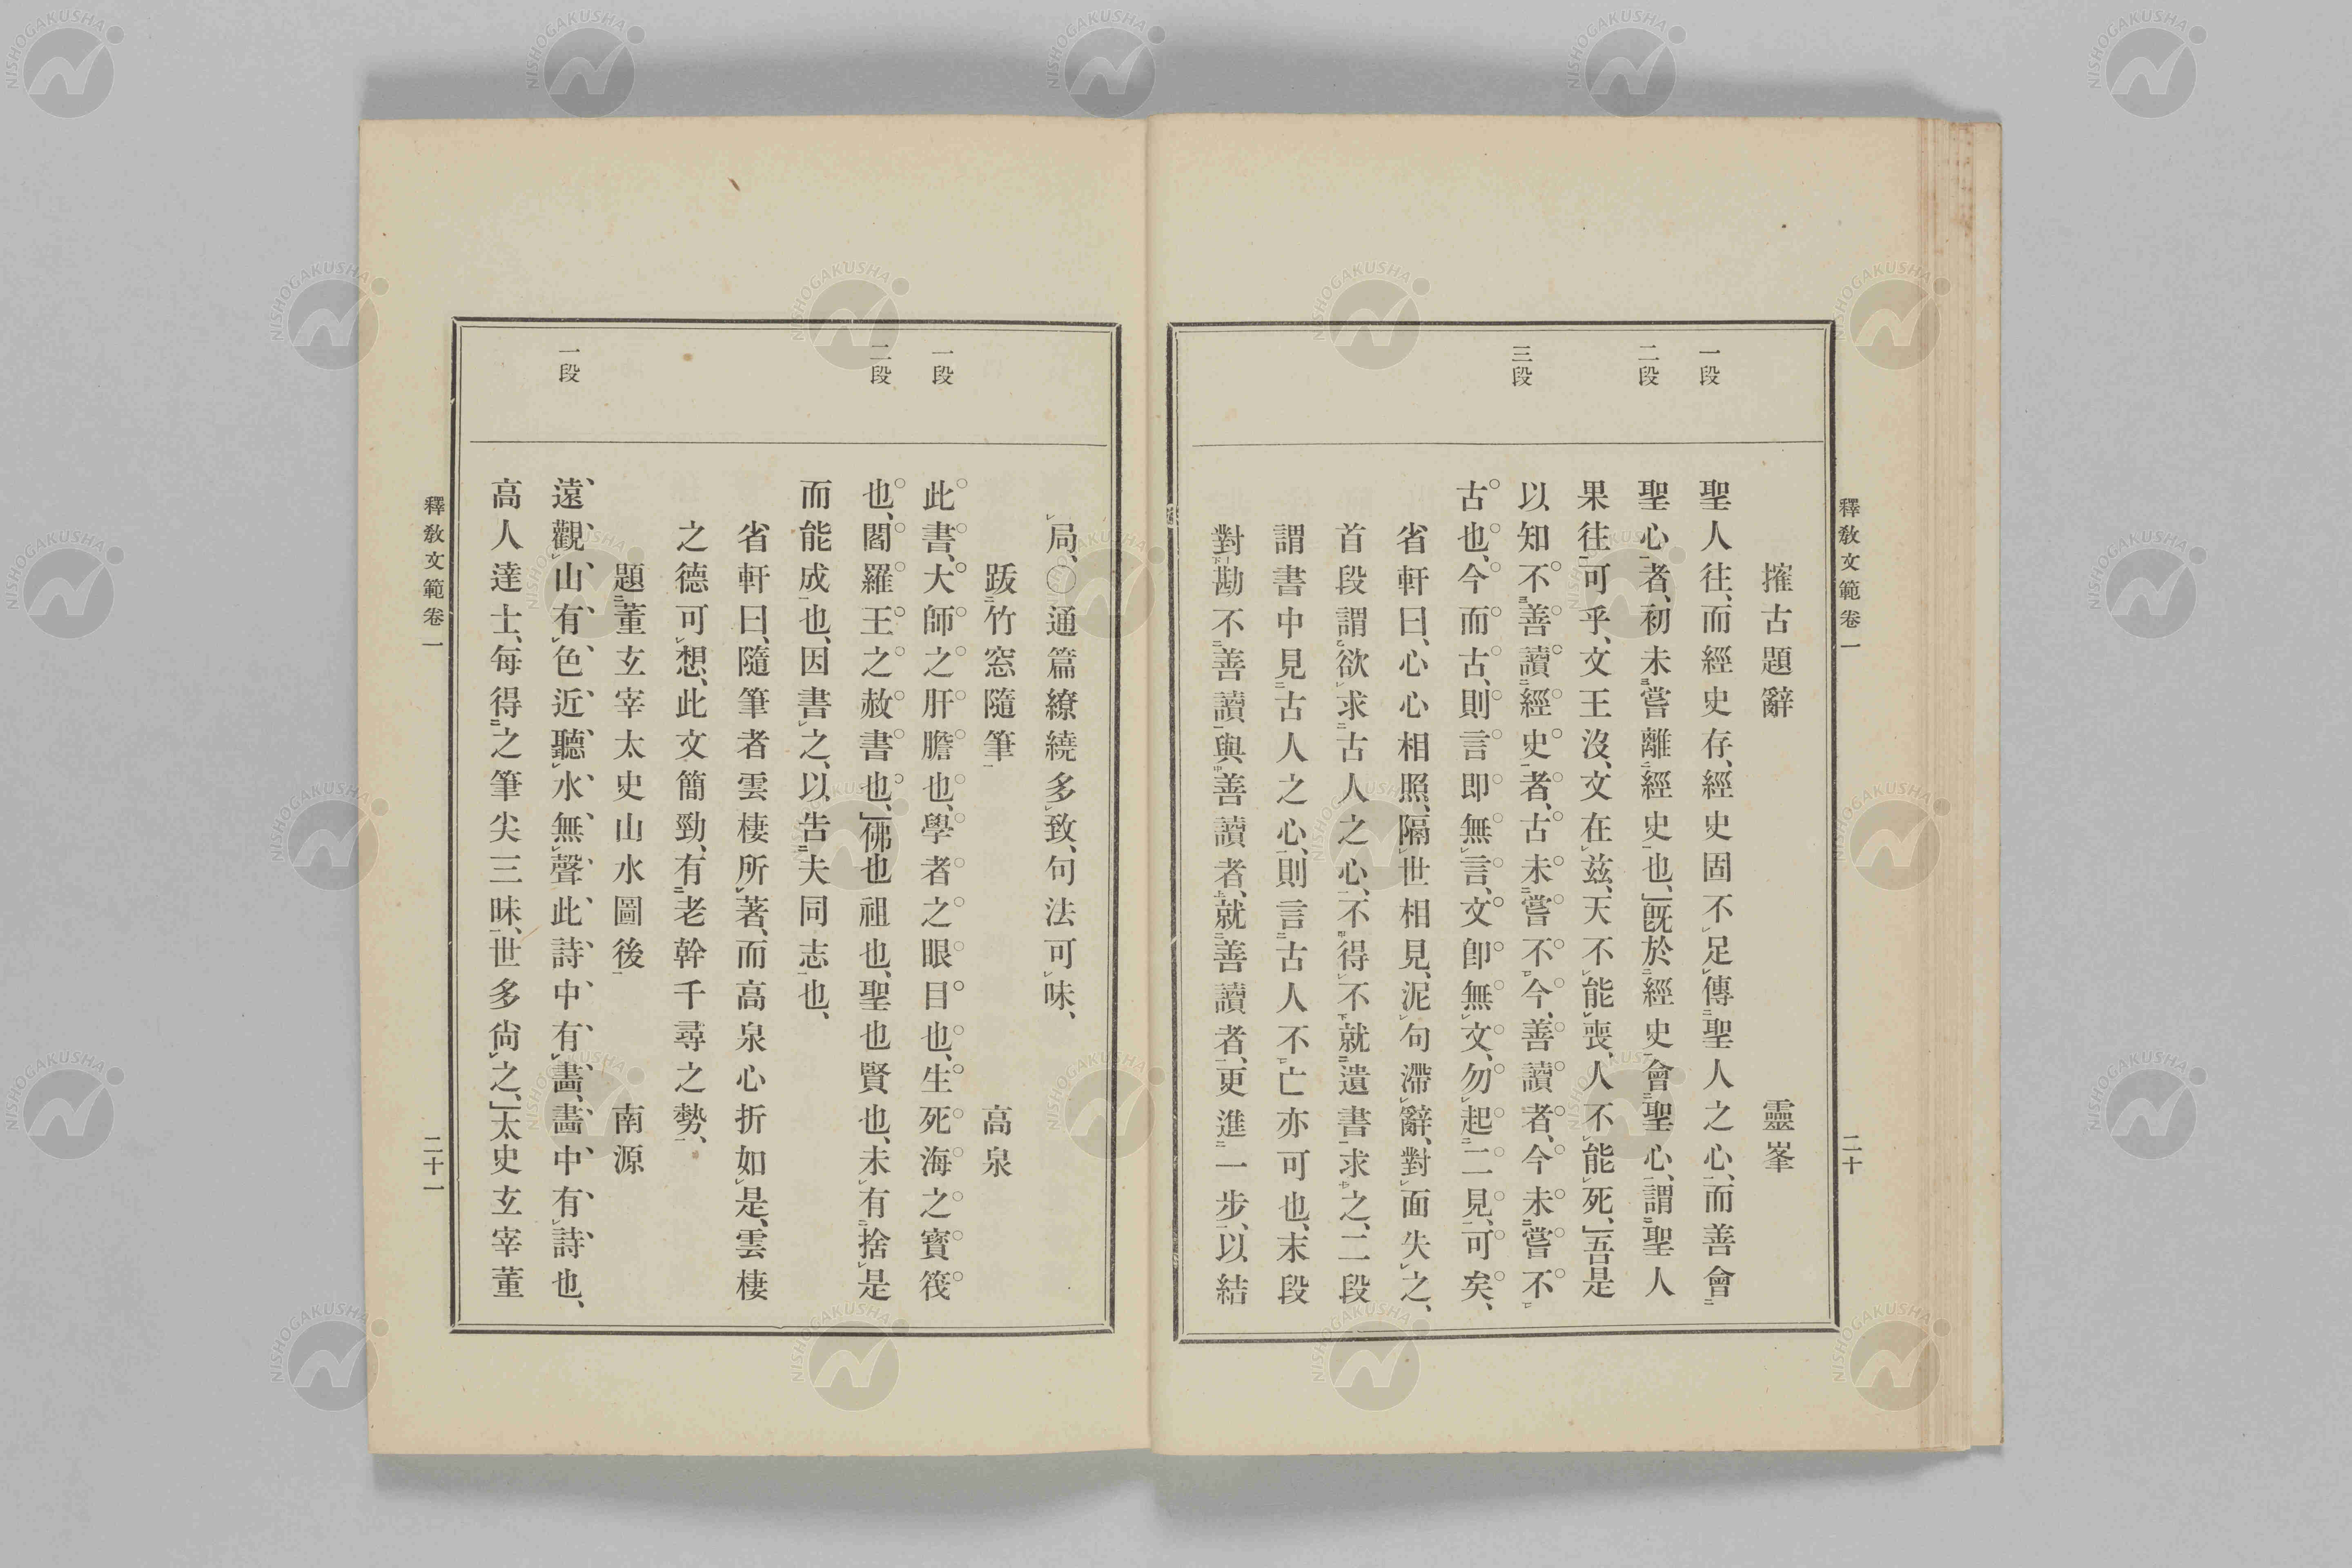 釋教文範卷一 二十
一段
二段
三段
搉古題辭 靈峯
聖人往、而經史存、經史固不足傳聖人之心、而善會
聖心者、初未嘗離經史也、」既於經史會聖心、謂聖人
果往可乎、文王沒、文在茲、天不能喪、人不能死、」吾是
以知不善讀經史者、古未嘗不今、善讀者、今未嘗不
古也、今而古、則言即無言、文卽無文、勿起二見、可矣、
省軒曰、心心相照、隔世相見、泥句滯辭、對面失之、
首段謂欲求古人之心、不得不就遺書求之、二段
謂書中見古人之心、則言古人不亡亦可也、末段
對勘不善讀與善讀者、就善讀者、更進一步、以結
一段
二段
一段
局、〇通篇繚繞多致、句法可味、
跋竹窓隨筆 高泉
此書、大師之肝膽也、學者之眼目也、生死海之寶筏
也、閻羅王之赦書也、」佛也祖也、聖也賢也、未有捨是
而能成也、因書之、以告夫同志也、
省軒曰、隨筆者雲棲所著、而高泉心折如是、雲棲
之德可想、此文簡勁、有老幹千尋之勢、
題董玄宰太史山水圖後 南源
遠觀山有色、近聽水無聲、此詩中有畵、畵中有詩也、
高人達士、每得之筆尖三昧、世多尙之、」太史玄宰董
釋教文範卷一 二十一
NISHOGAKUSHA